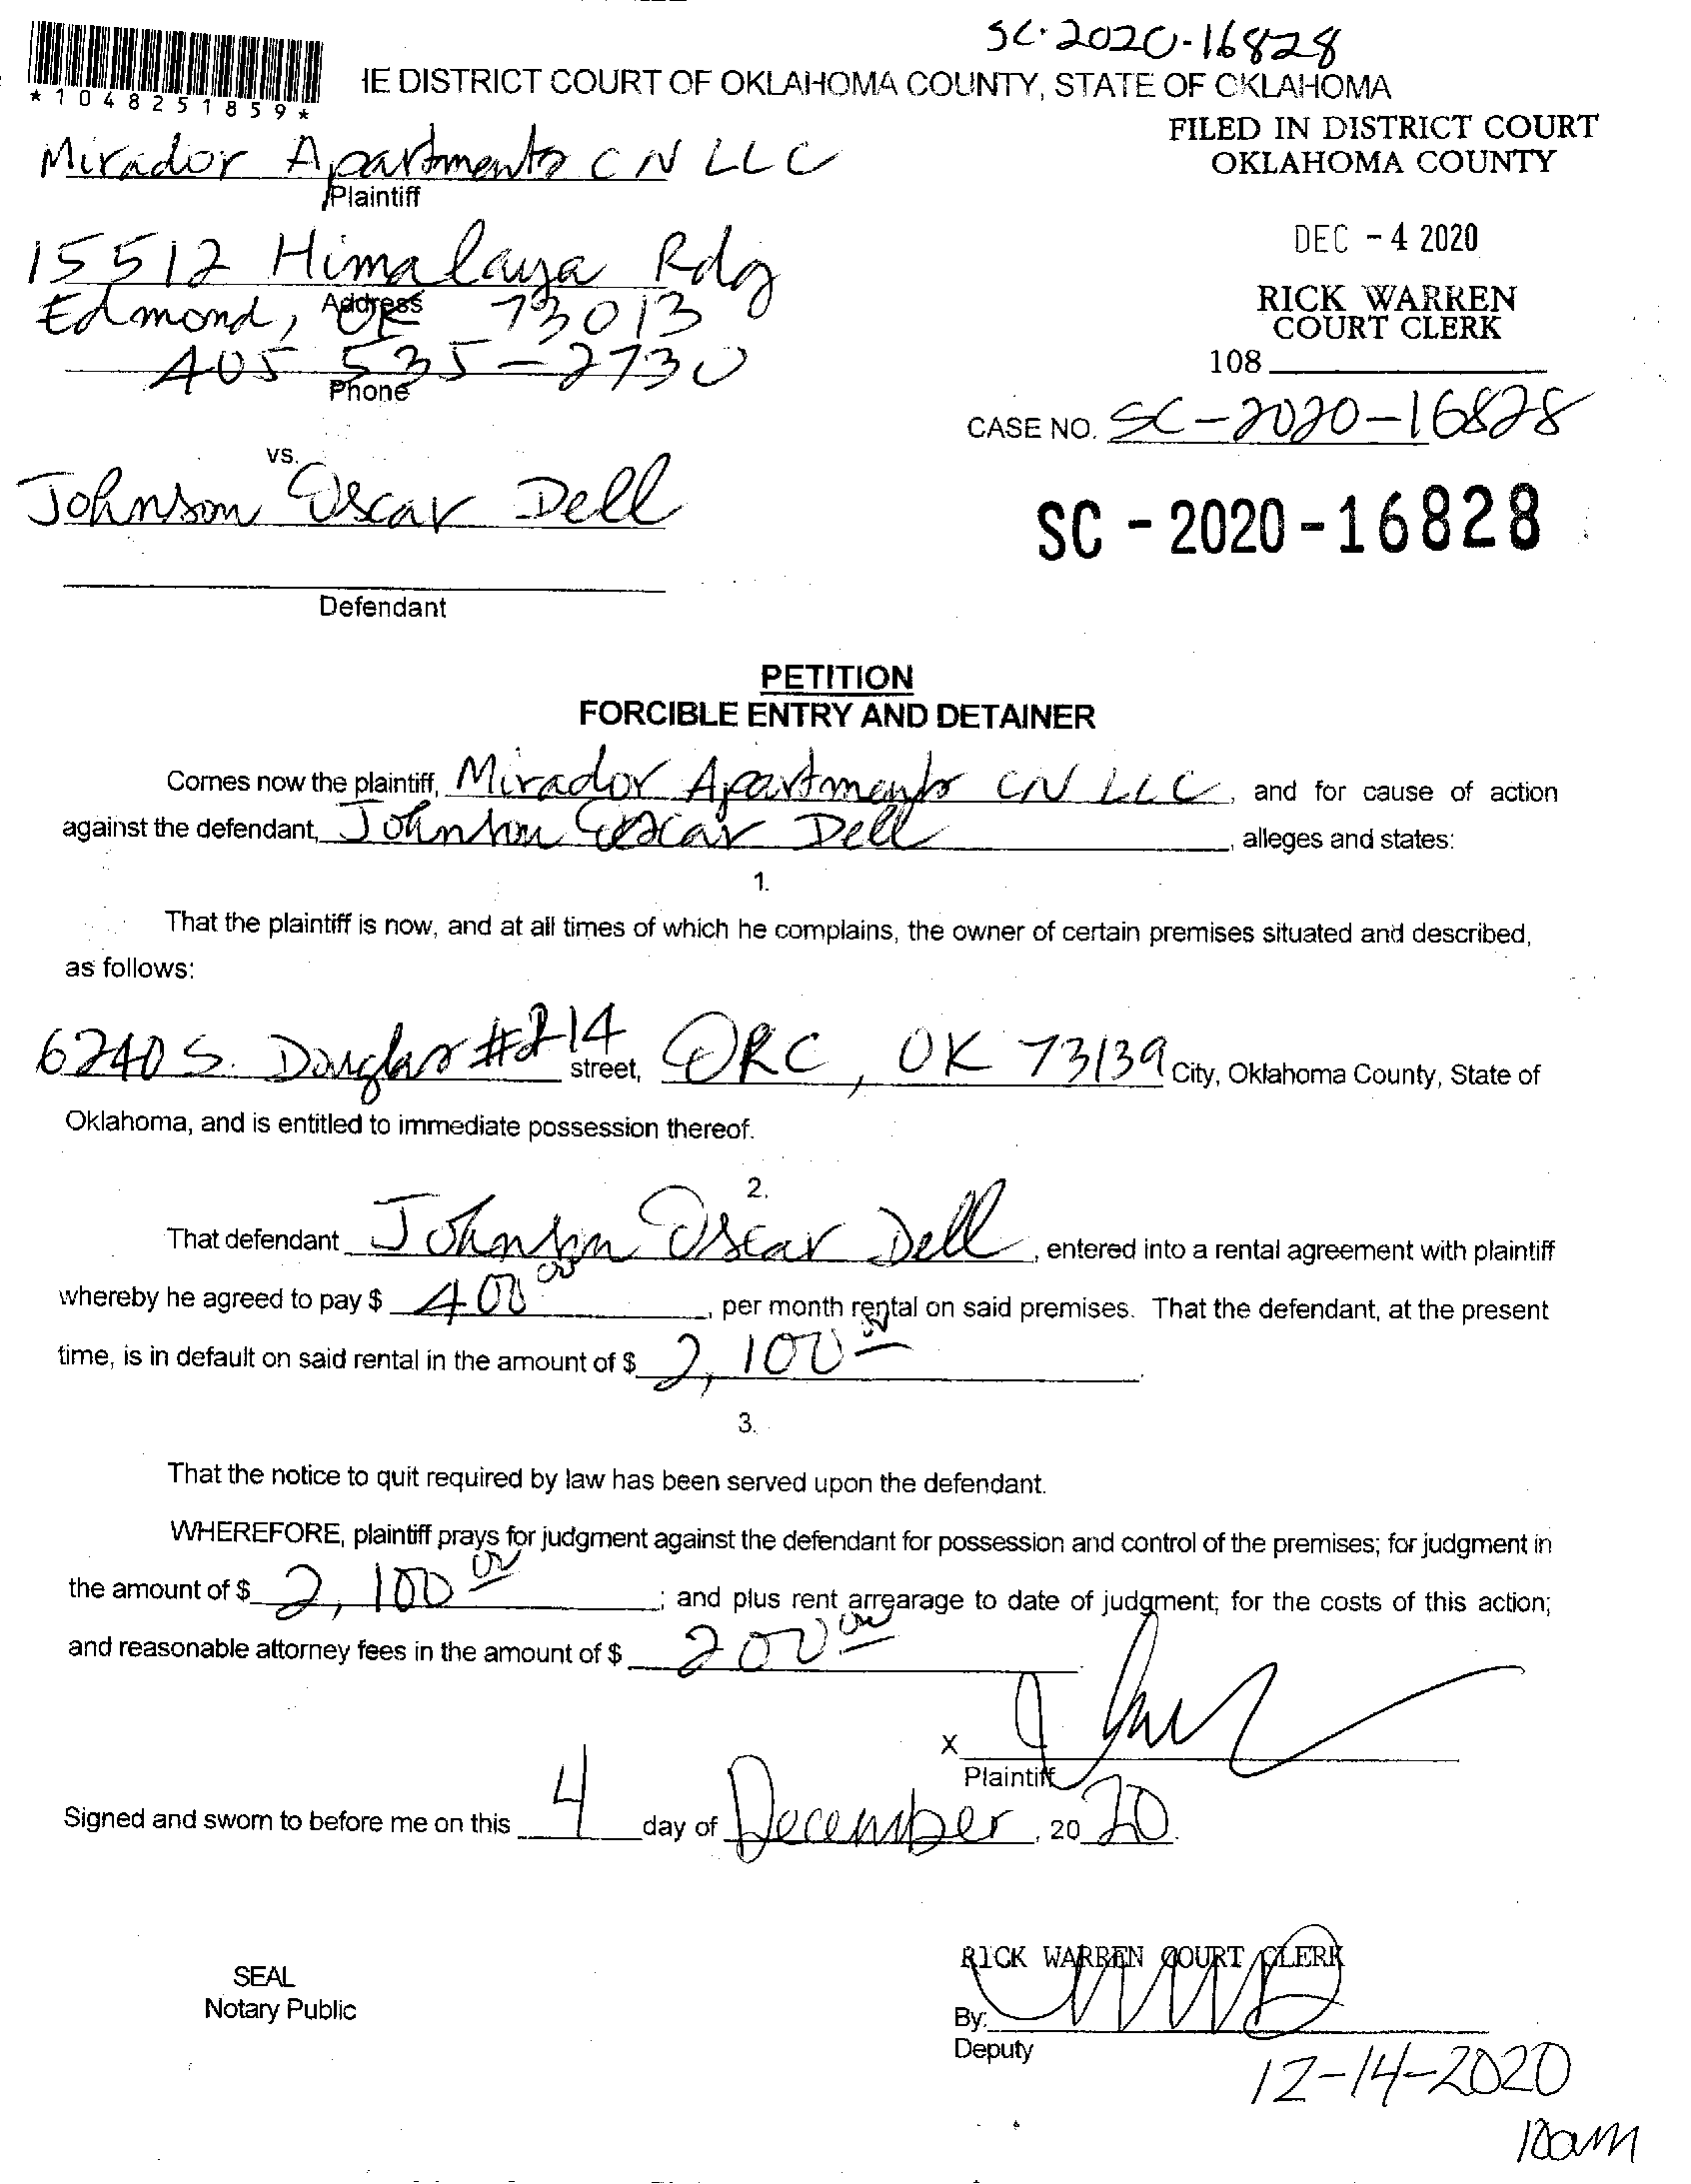 SC-2020-16828
IE DISTRICT COURT OF OKLAHOMA COUNTY, STATE OF OKLAHOMA
*1048251859*
FILED IN DISTRICT COURT
OKLAHOMA COUNTY
Mirador Apartments CN LLC
Plaintiff
DEC - 4 2020
15512 Himalaya Rdg
Address
Edmond, OK 73013
RICK WARREN
COURT CLERK
405 535-2730
Phone
108
CASE NO. SC-2020-16828
vs.
Johnson Oscar Dell
SC - 2020 - 16828
Defendant
PETITION
FORCIBLE ENTRY AND DETAINER
Comes now the plaintiff, Mirador Apartments CN LLC, and for cause of action
against the defendant, Johnson Oscar Dell, alleges and states:
1.
That the plaintiff is now, and at all times of which he complains, the owner of certain premises situated and described,
as follows:
6240 S. Douglas #214 street, OKC, OK 73139 City, Oklahoma County, State of
Oklahoma, and is entitled to immediate possession thereof.
2.
That defendant Johnson Oscar Dell, entered into a rental agreement with plaintiff
whereby he agreed to pay $ 400 00, per month rental on said premises. That the defendant, at the present
time, is in default on said rental in the amount of $ 2,100 00.
3.
That the notice to quit required by law has been served upon the defendant.
WHEREFORE, plaintiff prays for judgment against the defendant for possession and control of the premises; for judgment in
the amount of $ 2,100 00; and plus rent arrearage to date of judgment; for the costs of this action;
and reasonable attorney fees in the amount of $ 200 00
X
Plaintiff
Signed and sworn to before me on this 4 day of December, 20 20.
RICK WARREN COURT CLERK
SEAL
Notary Public
By:
Deputy
12-14-2020
10am